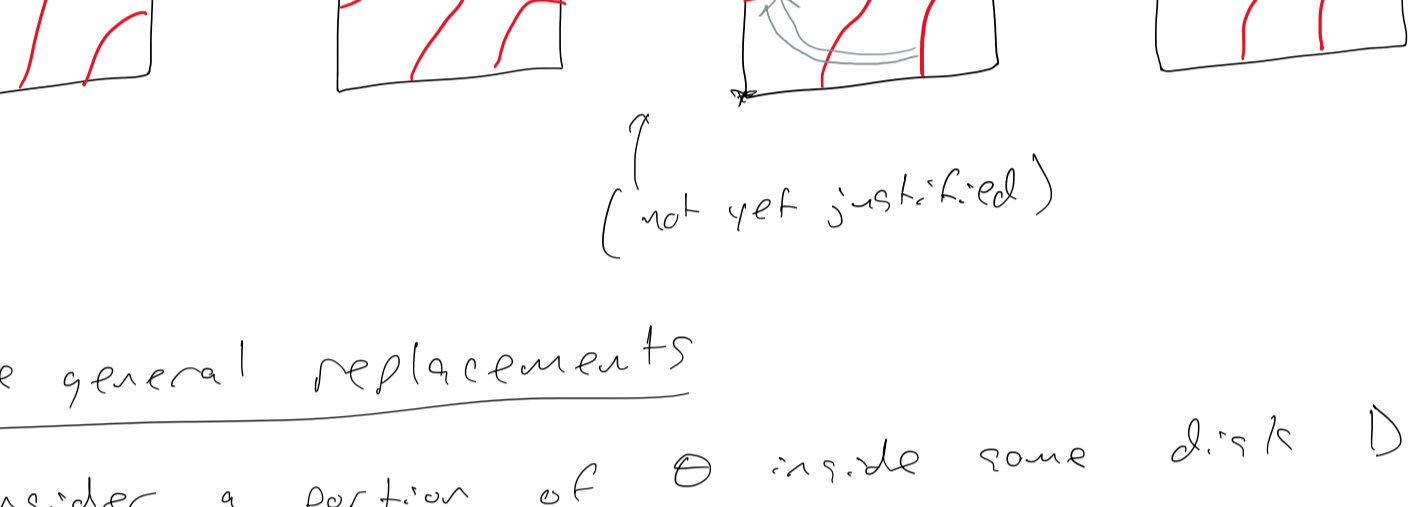 (not yet justified)
e general replacements
nsider a portion of Θ inside some disk D